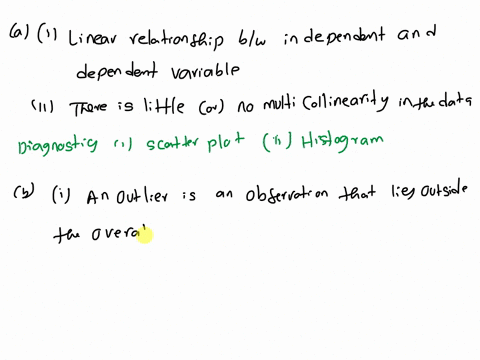 (a) (i) Linear relationship b/w independent and
dependent variable
(ii) There is little (or) no multi collinearity in the data
Diagnostig (i) scatter plot (ii) Histogram
(b) (i) An outlier is an observation that lies outside
the overal